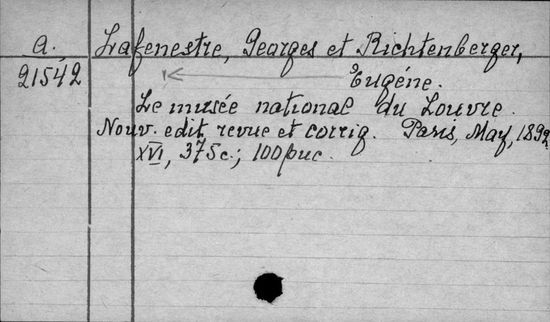 A. Lafenestre, Georges et Richtenberger,
21542 Eugéne.
Le musée national du Louvre.
Nouv. edit. revue et corrig. Paris, May, 1892
XVI, 375 c.; 100 рис.